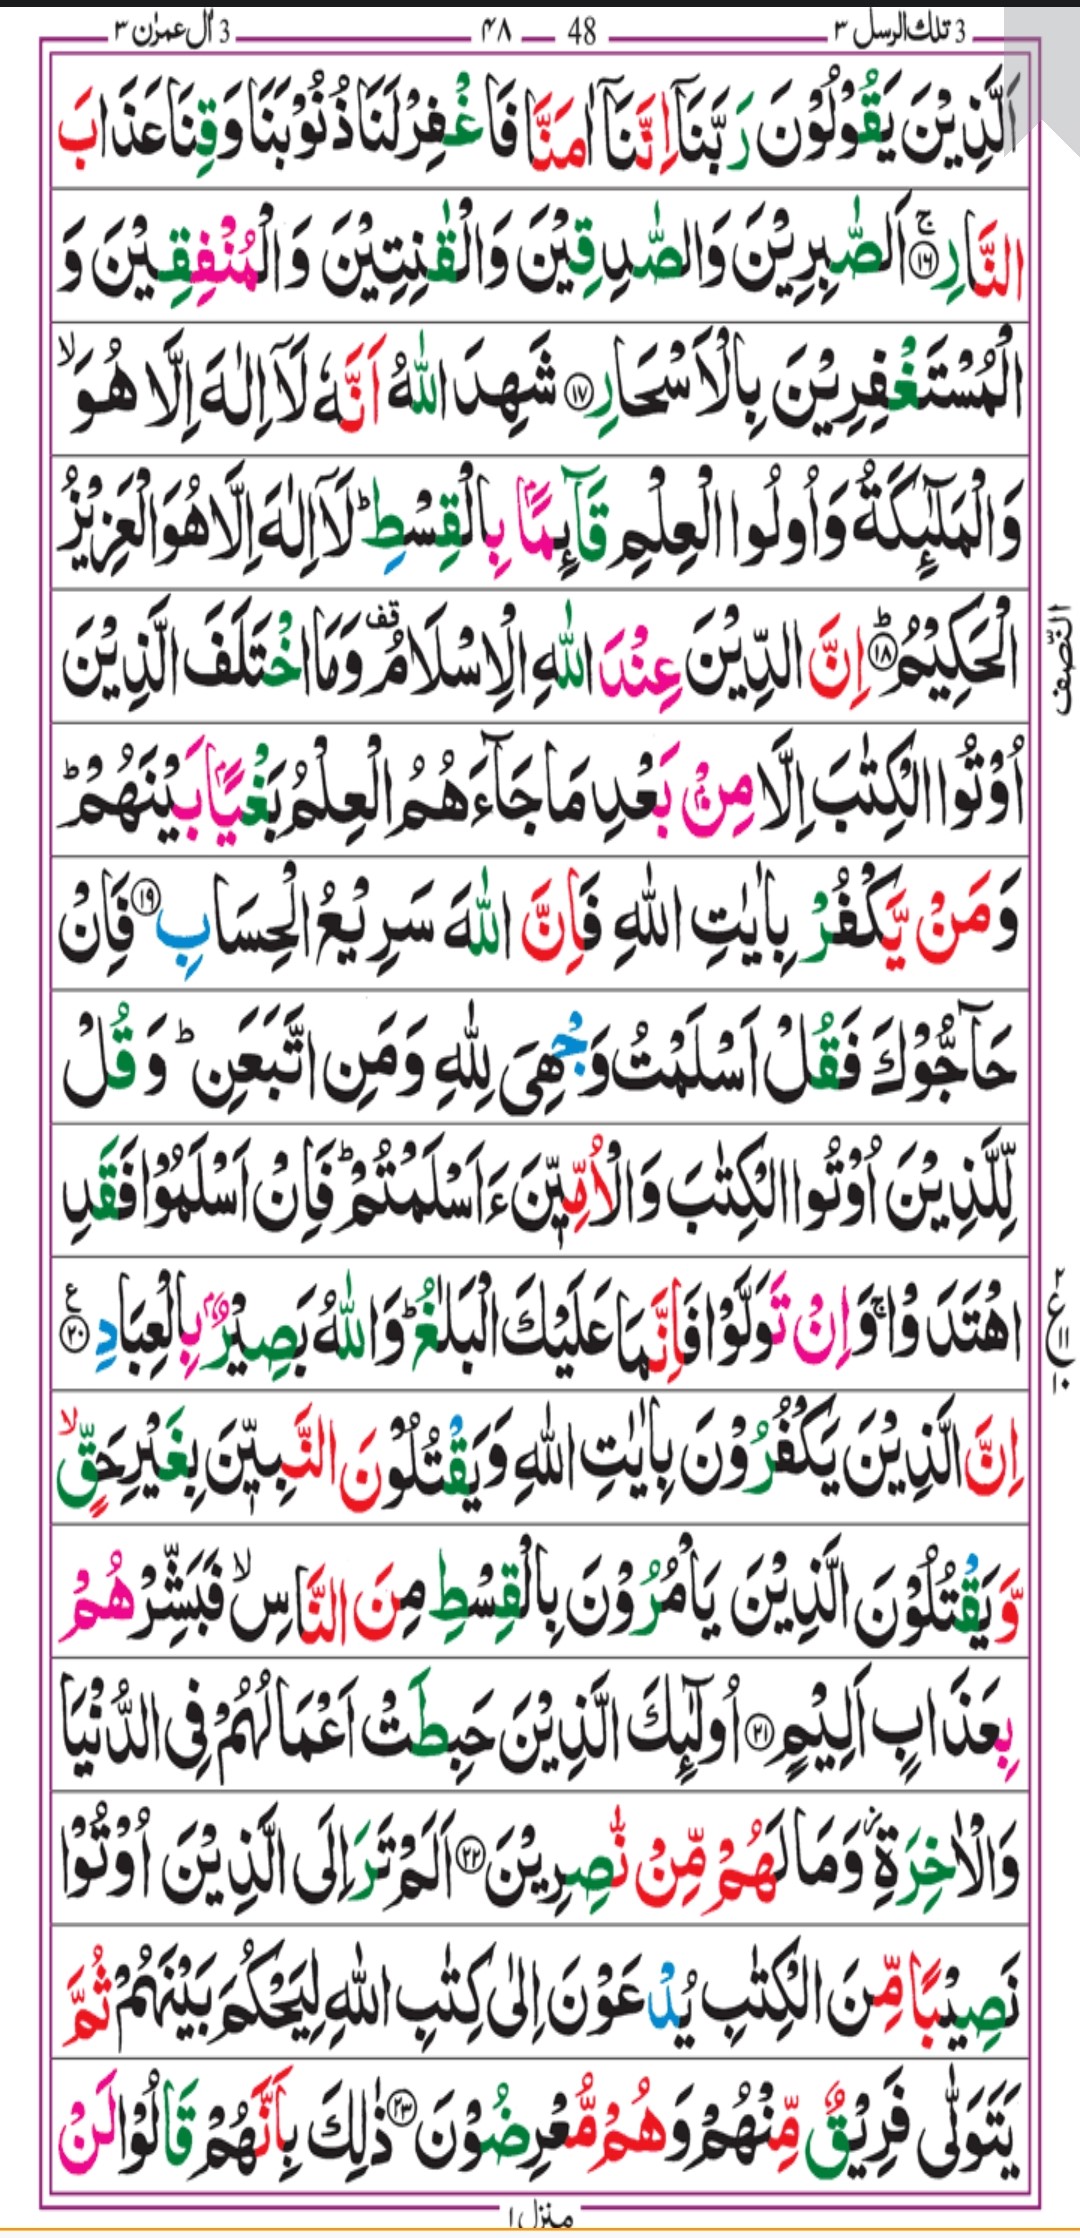 3 تلك الرسل ٣
48 — ٤٨
3 اٰل عمرٰن ٣
اَلَّذِيْنَ يَقُوْلُوْنَ رَبَّنَاۤ اِنَّنَاۤ اٰمَنَّا فَاغْفِرْلَنَا ذُنُوْبَنَا وَقِنَا عَذَابَ
النَّارِ ۚ‏﴿۱۶﴾ اَلصّٰبِرِيْنَ وَالصّٰدِقِيْنَ وَالْقٰنِتِيْنَ وَالْمُنْفِقِيْنَ وَ
الْمُسْتَغْفِرِيْنَ بِالْاَسْحَارِ ﴿۱۷﴾ شَهِدَ اللّٰهُ اَنَّهٗ لَاۤ اِلٰهَ اِلَّا هُوَ ۙ
وَالْمَلٰٓئِكَةُ وَاُولُوا الْعِلْمِ قَآئِمًۢا بِالْقِسْطِ ؕ لَاۤ اِلٰهَ اِلَّا هُوَ الْعَزِيْزُ
الْحَكِيْمُ ؕ﴿۱۸﴾ اِنَّ الدِّيْنَ عِنْدَ اللّٰهِ الْاِسْلَامُ قف وَمَا اخْتَلَفَ الَّذِيْنَ
النّصف
اُوْتُوا الْكِتٰبَ اِلَّا مِنْۢ بَعْدِ مَا جَآءَهُمُ الْعِلْمُ بَغْيًاۢ بَيْنَهُمْ ؕ
وَمَنْ يَّكْفُرْ بِاٰيٰتِ اللّٰهِ فَاِنَّ اللّٰهَ سَرِيْعُ الْحِسَابِ ﴿۱۹﴾ فَاِنْ
حَآجُّوْكَ فَقُلْ اَسْلَمْتُ وَجْهِىَ لِلّٰهِ وَمَنِ اتَّبَعَنِ ؕ وَقُلْ
لِّلَّذِيْنَ اُوْتُوا الْكِتٰبَ وَالْاُمِّيّٖنَ ءَاَسْلَمْتُمْ ؕ فَاِنْ اَسْلَمُوْا فَقَدِ
اهْتَدَوْا ۚ وَاِنْ تَوَلَّوْا فَاِنَّمَا عَلَيْكَ الْبَلٰغُ ؕ وَاللّٰهُ بَصِيْرٌۢ بِالْعِبَادِ ﴿۲۰﴾ ع
٢
ع
١١
١٠
اِنَّ الَّذِيْنَ يَكْفُرُوْنَ بِاٰيٰتِ اللّٰهِ وَيَقْتُلُوْنَ النَّبِيّٖنَ بِغَيْرِ حَقٍّ ۙ
وَّيَقْتُلُوْنَ الَّذِيْنَ يَاْمُرُوْنَ بِالْقِسْطِ مِنَ النَّاسِ ۙ فَبَشِّرْهُمْ
بِعَذَابٍ اَلِيْمٍ ﴿۲۱﴾ اُولٰٓئِكَ الَّذِيْنَ حَبِطَتْ اَعْمَالُهُمْ فِى الدُّنْيَا
وَالْاٰخِرَةِ ؗ وَمَا لَهُمْ مِّنْ نّٰصِرِيْنَ ﴿۲۲﴾ اَلَمْ تَرَ اِلَى الَّذِيْنَ اُوْتُوْا
نَصِيْبًا مِّنَ الْكِتٰبِ يُدْعَوْنَ اِلٰى كِتٰبِ اللّٰهِ لِيَحْكُمَ بَيْنَهُمْ ثُمَّ
يَتَوَلّٰى فَرِيْقٌ مِّنْهُمْ وَهُمْ مُّعْرِضُوْنَ ﴿۲۳﴾ ذٰلِكَ بِاَنَّهُمْ قَالُوْا لَنْ
منزل ١